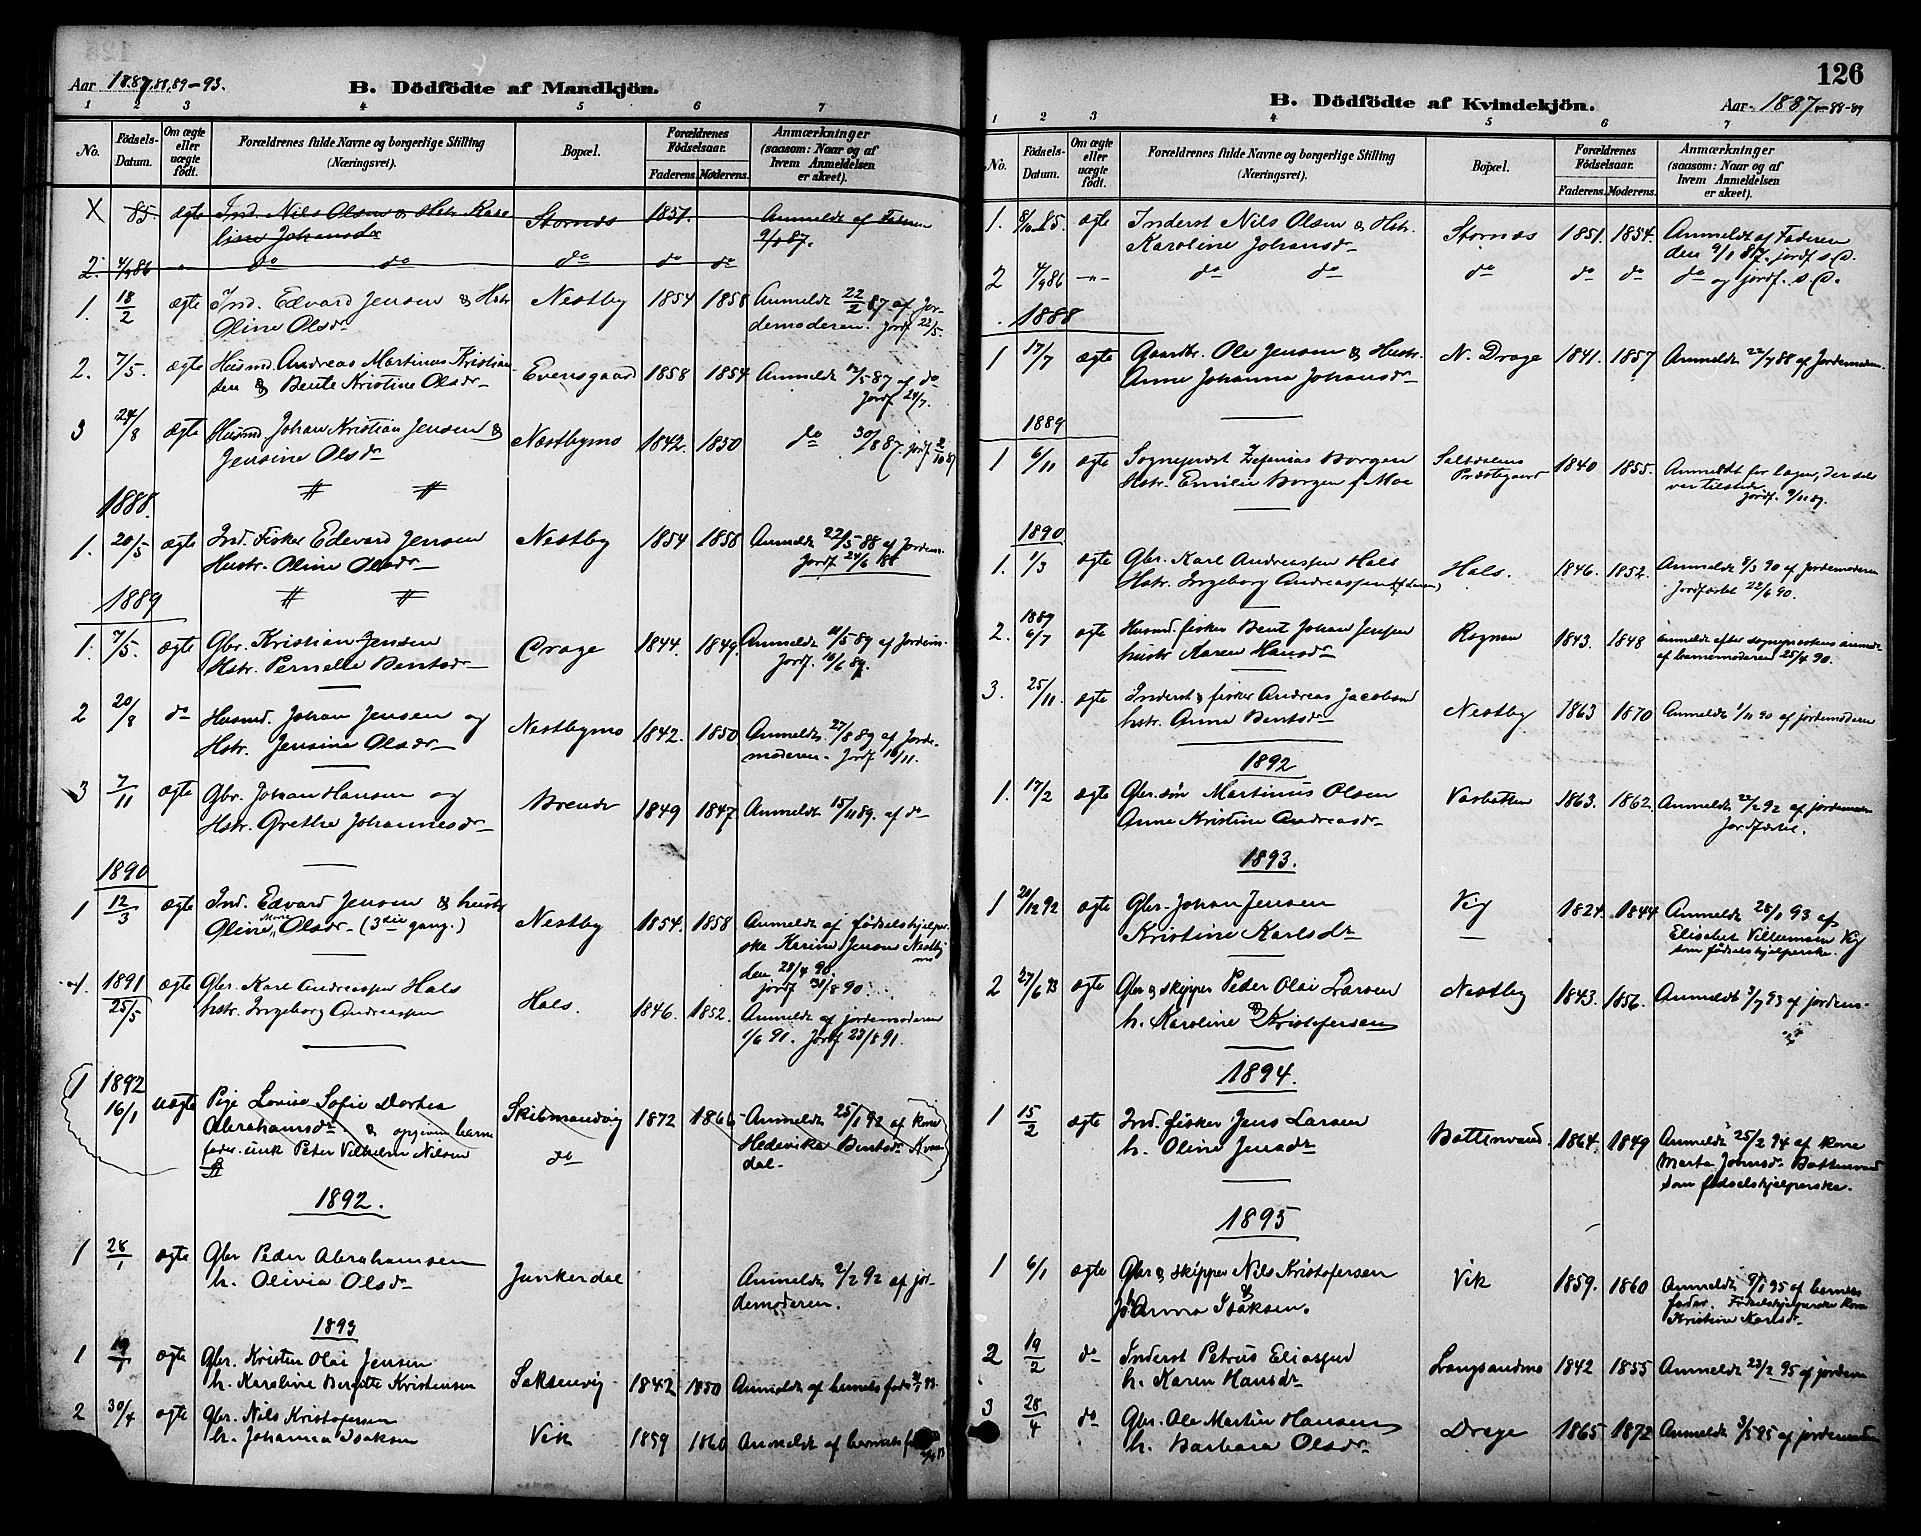 Aar 1887,88,89-93.
B. Dödfödte af Mandkjön.
1 2 3 4 5 6 7
No. Födsels-Datum. Om ægte eller uægte födt. Forældrenes fulde Navne og borgerlige Stilling (Næringsvei). Bopæl. Forældrenes Födselsaar. Faderens. Moderens. Anmærkninger (saasom: Naar og af hvem Anmeldelsen er skeet).
X 85. ægte Ind. Nils Olsen & Hstr. Karo Stornæs 1851. Anmeldt af Faderen
line Johansdr 9/1 87.
2. 4/9 86 - do do do do do
1. 18/2 ægte Ind. Edvard Jensen & Hstr. Nestby 1854 1858 Anmeldt 22/2 87 af Jor-
Oline Olsdr demoderen. Jordf 22/5.
2. 7/5. ægte Husmd. Andreas Martinus Kristian Evensgaard 1858 1854 Anmeldt 12/5 87 af do
sen & Bente Kristine Olsdr Jordf. 24/7.
3 24/8 ægte Husmd. Johan Kristian Jensen & Næstbymo 1842. 1850 do 30/8 87. jordf 2/10 87
Jensine Olsdr
1888.
1. 20/5 ægte Ind. Fisker Edevard Jensen Nestby 1854 1858 Anmeldt 22/5 88 af Jordem.
Hustr. Oline Olsdr Jordf 24/6 88
1889
1. 7/5. ægte Gbr. Kristian Jensen Drage 1844. 1849. Anmeldt 11/5 89 af Jordem.
Hstr. Pernelle Bentsdr Jordf. 10/6 89.
2 20/8 do Husmd. Johan Jensen og Nestbymo 1842. 1850 Anmeldt 27/8 89 af Jorde-
Hstr. Jensine Olsdr moderen. Jordf 10/11.
3 7/11 ægte Gbr. Johan Hansen og Brende 1849 1847 Anmeldt 15/11 89. af do
Hstr. Grethe Johannesdr
1890
1 12/3 ægte Ind. Edvard Jensen & hustr Nestby 1854. 1858 Anmeldt af fødselshjelper
Oline Marie Olsdr (3die gang.) ske Karine Jensen Nestby
mo
den 28/4 90.
jordf /8 90.
1. 1891 25/5 ægte Gbr. Karl Andreassen Hals Hals. 1846. 1852. Anmeldt af jordemoderen
hstr. Ingeborg Andreassen 1/6 91. Jordf 23/8 91.
1 1892 16/1 uægte Pige Lovise Sofie Dortea Skibmandvig 1872 1866 Anmeldt 25/1 92 af kone
Abrahamsdr & opgiven barne do Hedevika Bentsdr
fader: unk Peter Vilhelm Nilsen dal.
1892.
1 28/1 ægte Gbr Peder Abrahamsen Junkerdal Anmeldt 2/2 92 af jor
h. Olivia Olsdr demoderen.
1893
1 19/1 ægte Gbr. Kristen Olai Jensen Saksenvig 1842 1850 Anmeldt af barnets fader
h. Karoline Bergitte Kristensen
2 30/4 ægte Gbr. Nils Kristofersen Vik 1859 1860 Anmeldt af barnets
h. Johanna Isaksen
126
B. Dödfödte af Kvindekjön.
Aar 1887-88-89
1 2 3 4 5 6 7
No. Födsels-Datum. Om ægte eller uægte födt. Forældrenes fulde Navne og borgerlige Stilling (Næringsvei). Bopæl. Forældrenes Födselsaar. Faderens. Moderens. Anmærkninger (saasom: Naar og af hvem Anmeldelsen er skeet).
1. 8/10 85. ægte Inderst Nils Olsen & Hstr. Stornæs 1851. 1854. Anmeldt af Faderen
Karoline Johansdr den 9/1 87. jordf. s. D.
2 4/9 86 -"- do do do do do do og jordf. s. D.
1888
1 17/7 ægte Gaardbr. Ole Jensen & Hustr. N. Drage 1841. 1857 Anmeldt 22/7 88 af Jordemoderen.
Anne Johanna Johansdr
1889
1 6/11 ægte Sognepræst Zefanias Borgen Saltdalens 1840 1855. Anmeldt for lægen, der selv
Hstr. Emilie Borgen f Moe Præstegaard var tilstede. jordf. 9/11 89.
1890
1. 1/3 ægte Gbr. Karl Andreassen Hals Hals. 1846. 1852. Anmeldt 9/3 90 af Jordemoderen
Hstr. Ingeborg Andreassen Jordfæstet 22/6 90.
2. 1889 6/7 ægte Husmd. fisker Bent Johan Jensen Rognan 1843. 1848 anmeldt efter sognepræstens anmod.
hustr Karen Hansdr af barnemoderen 25/4 90.
3. 25/11 ægte Inderst & fisker Andreas Jacobsen Nestby 1863 1870 Anmeldt 1/11 90 af jordemoderen
hstr. Anne Bentsdr
1892
1. 17/2 ægte Gbr.søn Martinus Olsen Vasbotten 1863. 1862. Anmeldt 22/2 92 af jordemoderen
Anne Kristine Andreasdr Jordfæstet.
1893.
1 20/12 92 ægte Gbr. Johan Jensen Vig 1824. 1844 Anmeldt 28/1 93 af
Kristine Karlsdr Elisabet Villumsen Vig
som fødselshjelperske.
2 27/6 93 ægte Gbr & skipper Peder Olai Larsen Nestby 1843. 1856. Anmeldt 3/7 93 af jordem.
h. Karoline Kristofersen
1894.
1 15/2 ægte Ind. fisker Jens Larsen Bottenvand. 1864. 1849 Anmeldt 25/2 94 af kone
h. Oline Jensdr Marta Johnsdr Bottenvand
som fødselshjelperske.
1895
1 6/1 ægte Gbr & skipper Nils Kristofersen Vik 1859. 1860 Anmeldt 9/1 95 af barnets
Johanna Isaksen. fader. Fødselshjelperske kone
Kristine Karlsdr
2 19/2 do Inderst Petrus Eliassen Langsandmo 1842 1855 Anmeldt 23/2 95 af jordem
h. Karen Hansdr
3 28/4 do Gbr. Ole Martin Hansen Drage 1865 1872 Anmeldt 3/5 95 af jordemoden
h. Barbara Olsdr